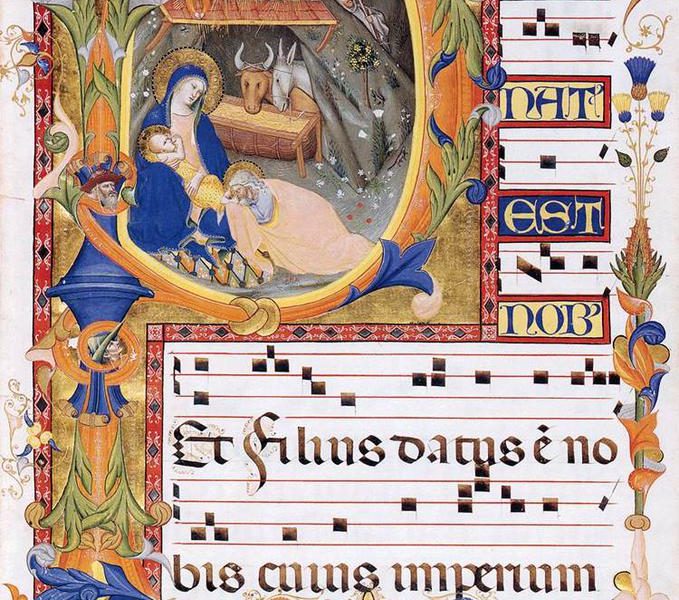 NAT'
EST
NOB'
Et Filius datus ē no
bis cuius imperium